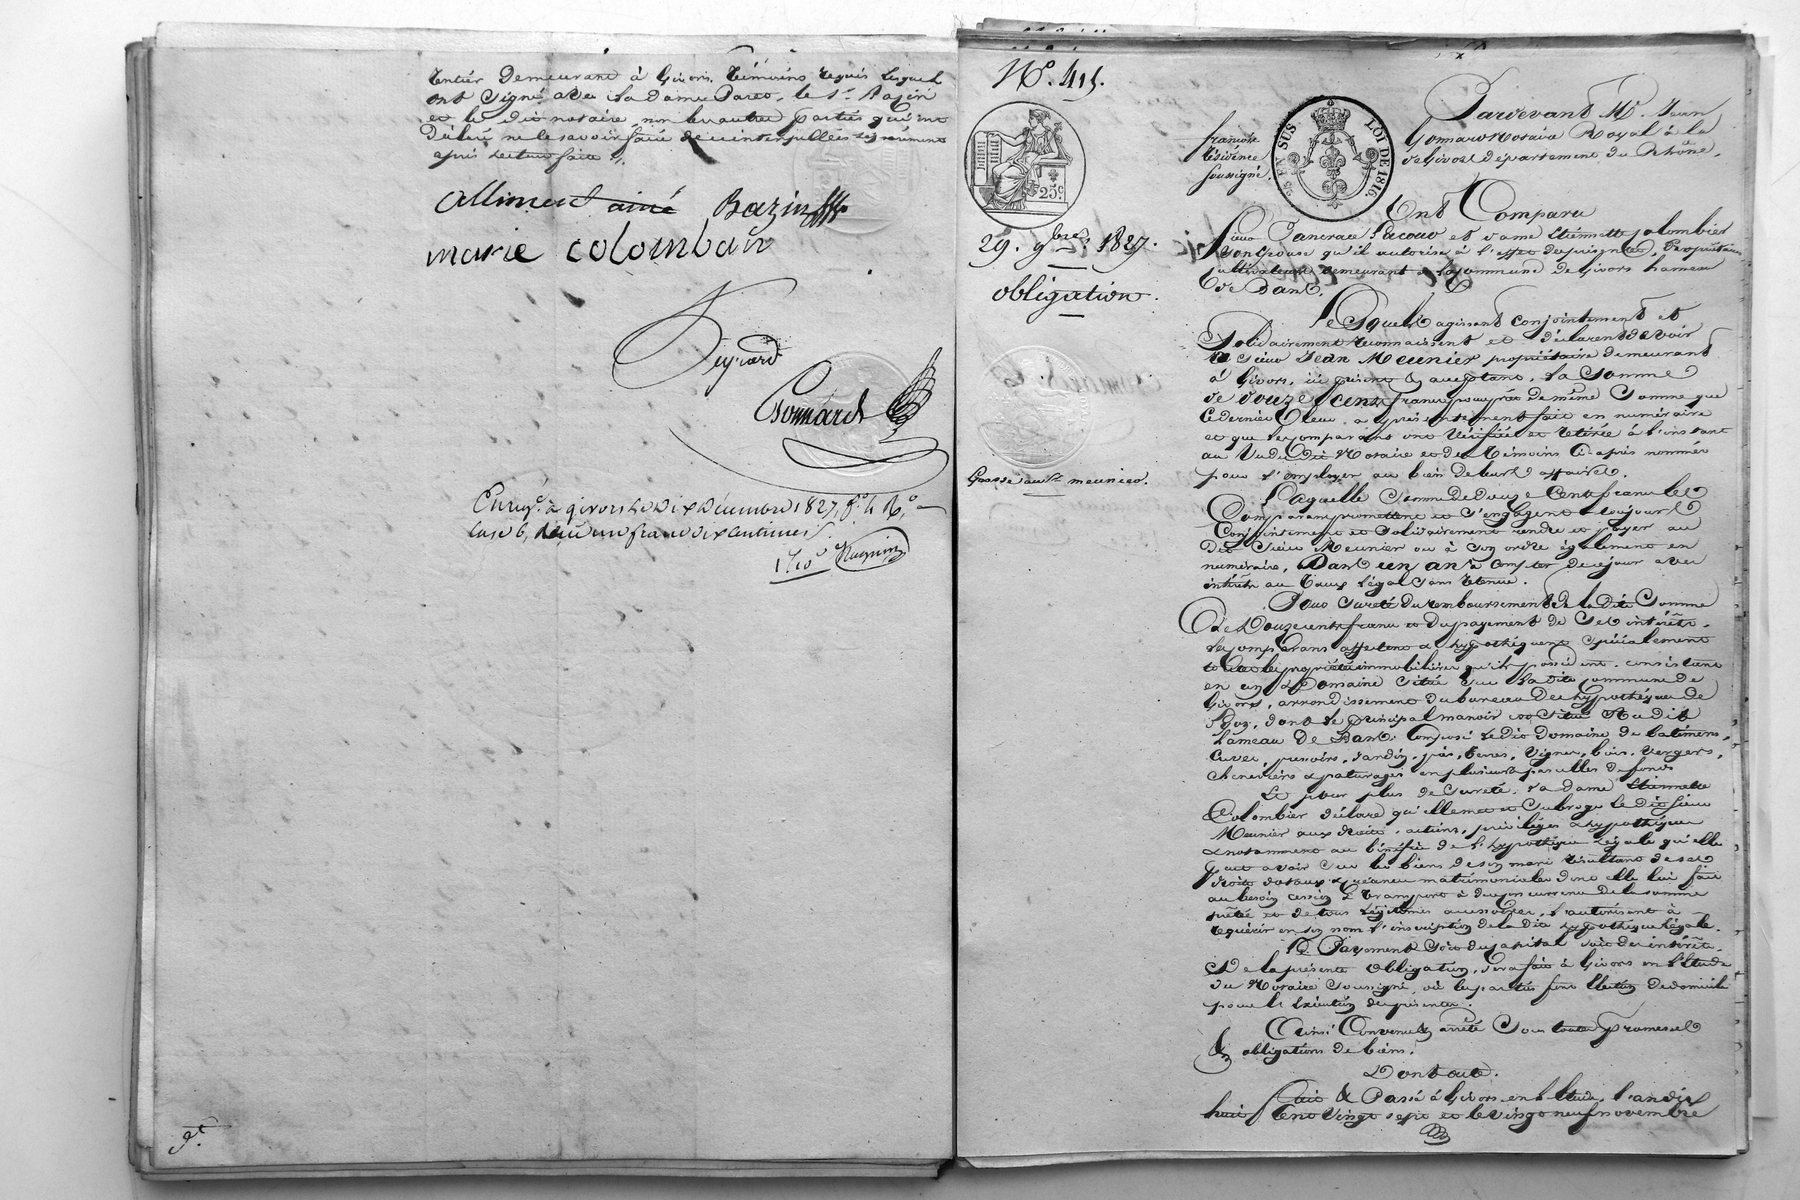 rentier demeurant à Givors, témoins requis lesquels
ont signé avec la dame Pareo, le Sr. Bazin
et le dit notaire, non les autres parties qui ont
déclaré ne le savoir faire de ce interpellées séparément
après lecture faite ./.
Alliment ainé Bazin
marie colombair
Peyrard
Gonnard
Enreg. à givors le Dix Décembre 1827, f° 4 R°
case 6, reçu un franc dix centimes
1f 10c
N°. 415.
25 c
29. 9bre. 1827.
obligation.
Grosse au Sr. meunier.
25 EN SUS LOI DE 1816.
françois
résidence
soussigné.
Pardevant Me. Jean
Gonnard Notaire Royal à la
de Givors département du Rhône,
Ont Comparu
Sieur Pancrace Pacour et dame Etiennette Colombier
son épouse qu'il autorise à l'effet des présentes, Propriétaires
cultivateurs demeurant à la commune de Givors hameau
de Bans.
Lesquels agissant conjointement et
Solidairement reconnaissent et déclarent devoir
à Sieur Jean Meunier propriétaire demeurant
à Givors, ici présent & acceptant, la Somme
de douze Cents francs pour prêt de même Somme que
ce dernier leur a présentement fait en numéraire
et que les comparants ont vérifiée et retirée à l'instant
au vu du dit Notaire et des témoins ci-après nommés
pour l'employer au bien de leurs affaires.
Laquelle Somme de douze Cents francs les
Comparans promettent et s'engagent toujours
Conjointement et Solidairement rendre et payer au
Dit Sieur Meunier ou à son ordre également en
numéraire, Dans un an à compter de ce jour avec
intérêts au taux légal sans retenue.
Pour sureté du remboursement de la dite Somme
de Douze cents francs et du payement de ses intérêts,
les comparans affectent & hypothèquent spécialement
toutes les propriétés immobilières qu'ils possèdent, consistant
en un Domaine situé sur la dite commune de
Givors, arrondissement du bureau des hypothèques de
Lyon, dont le principal manoir est situé au dit
hameau de Bans. Composé le dit Domaine de batimens,
cuves, pressoirs, jardin, prés, terres, vignes, bois, vergers,
chenevières & paturages en plusieurs parcelles de fonds
Et pour plus de Sureté, la dame Etiennette
Colombier déclare qu'elle met et Subroge le dit Sieur
Meunier aux droits, actions, privilèges & hypothèques
& notamment au bénéfice de l'hypothèque légale qu'elle
peut avoir sur les biens de son mari résultant de ses
droits dotaux & créances matrimoniales dont elle lui fait
au besoin cession & transport à due concurrence de la somme
prêtée et de tous légitimes accessoires, l'autorisant à
requérir en son nom l'inscription de la dite hypothèque légale.
Le Payement soit du capital soit des intérêts
de la présente obligation, sera fait à Givors en l'Etude
du Notaire Soussigné, où les parties font Election de domicile
pour l'exécution des présentes.
Ainsi Convenu & arrêté Sous toutes Promesses
& obligations de biens.
Dont acte.
fait & Passé à Givors en l'Etude, l'an dix
huit Cent vingt sept et le vingt neuf novembre